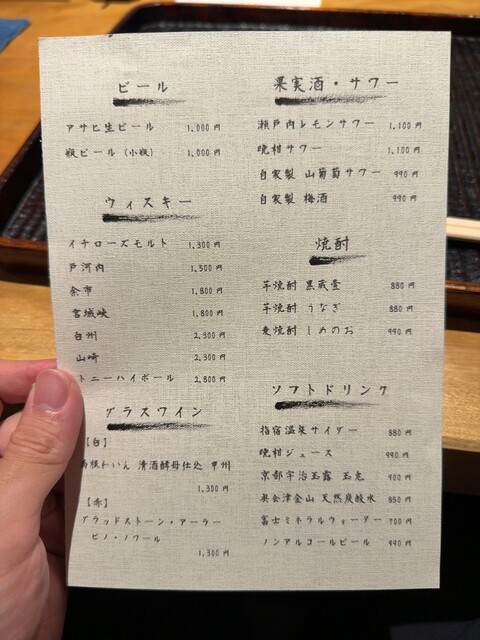 ビール
アサヒ生ビール 1,000 円
瓶ビール (小瓶) 1,000 円
ウィスキー
イチローズモルト 1,300 円
戸河内 1,500 円
余市 1,800 円
宮城峡 1,800 円
白州 2,300 円
山崎 2,300 円
トニーハイボール 2,800 円
グラスワイン
【白】
島根わいん 清酒酵母仕込 甲州
1,300 円
【赤】
グラッドストーン・アーラー
ピノ・ノワール
1,300 円
果実酒・サワー
瀬戸内レモンサワー 1,100 円
晩柑サワー 1,100 円
自家製 山葡萄サワー 990 円
自家製 梅酒 990 円
焼酎
芋焼酎 黒蔵壹 880 円
芋焼酎 うなぎ 880 円
麦焼酎 しめのお 990 円
ソフトドリンク
指宿温泉サイダー 880 円
晩柑ジュース 990 円
京都宇治玉露 玉兎 900 円
奥会津金山 天然炭酸水 850 円
富士ミネラルウォーター 700 円
ノンアルコールビール 990 円